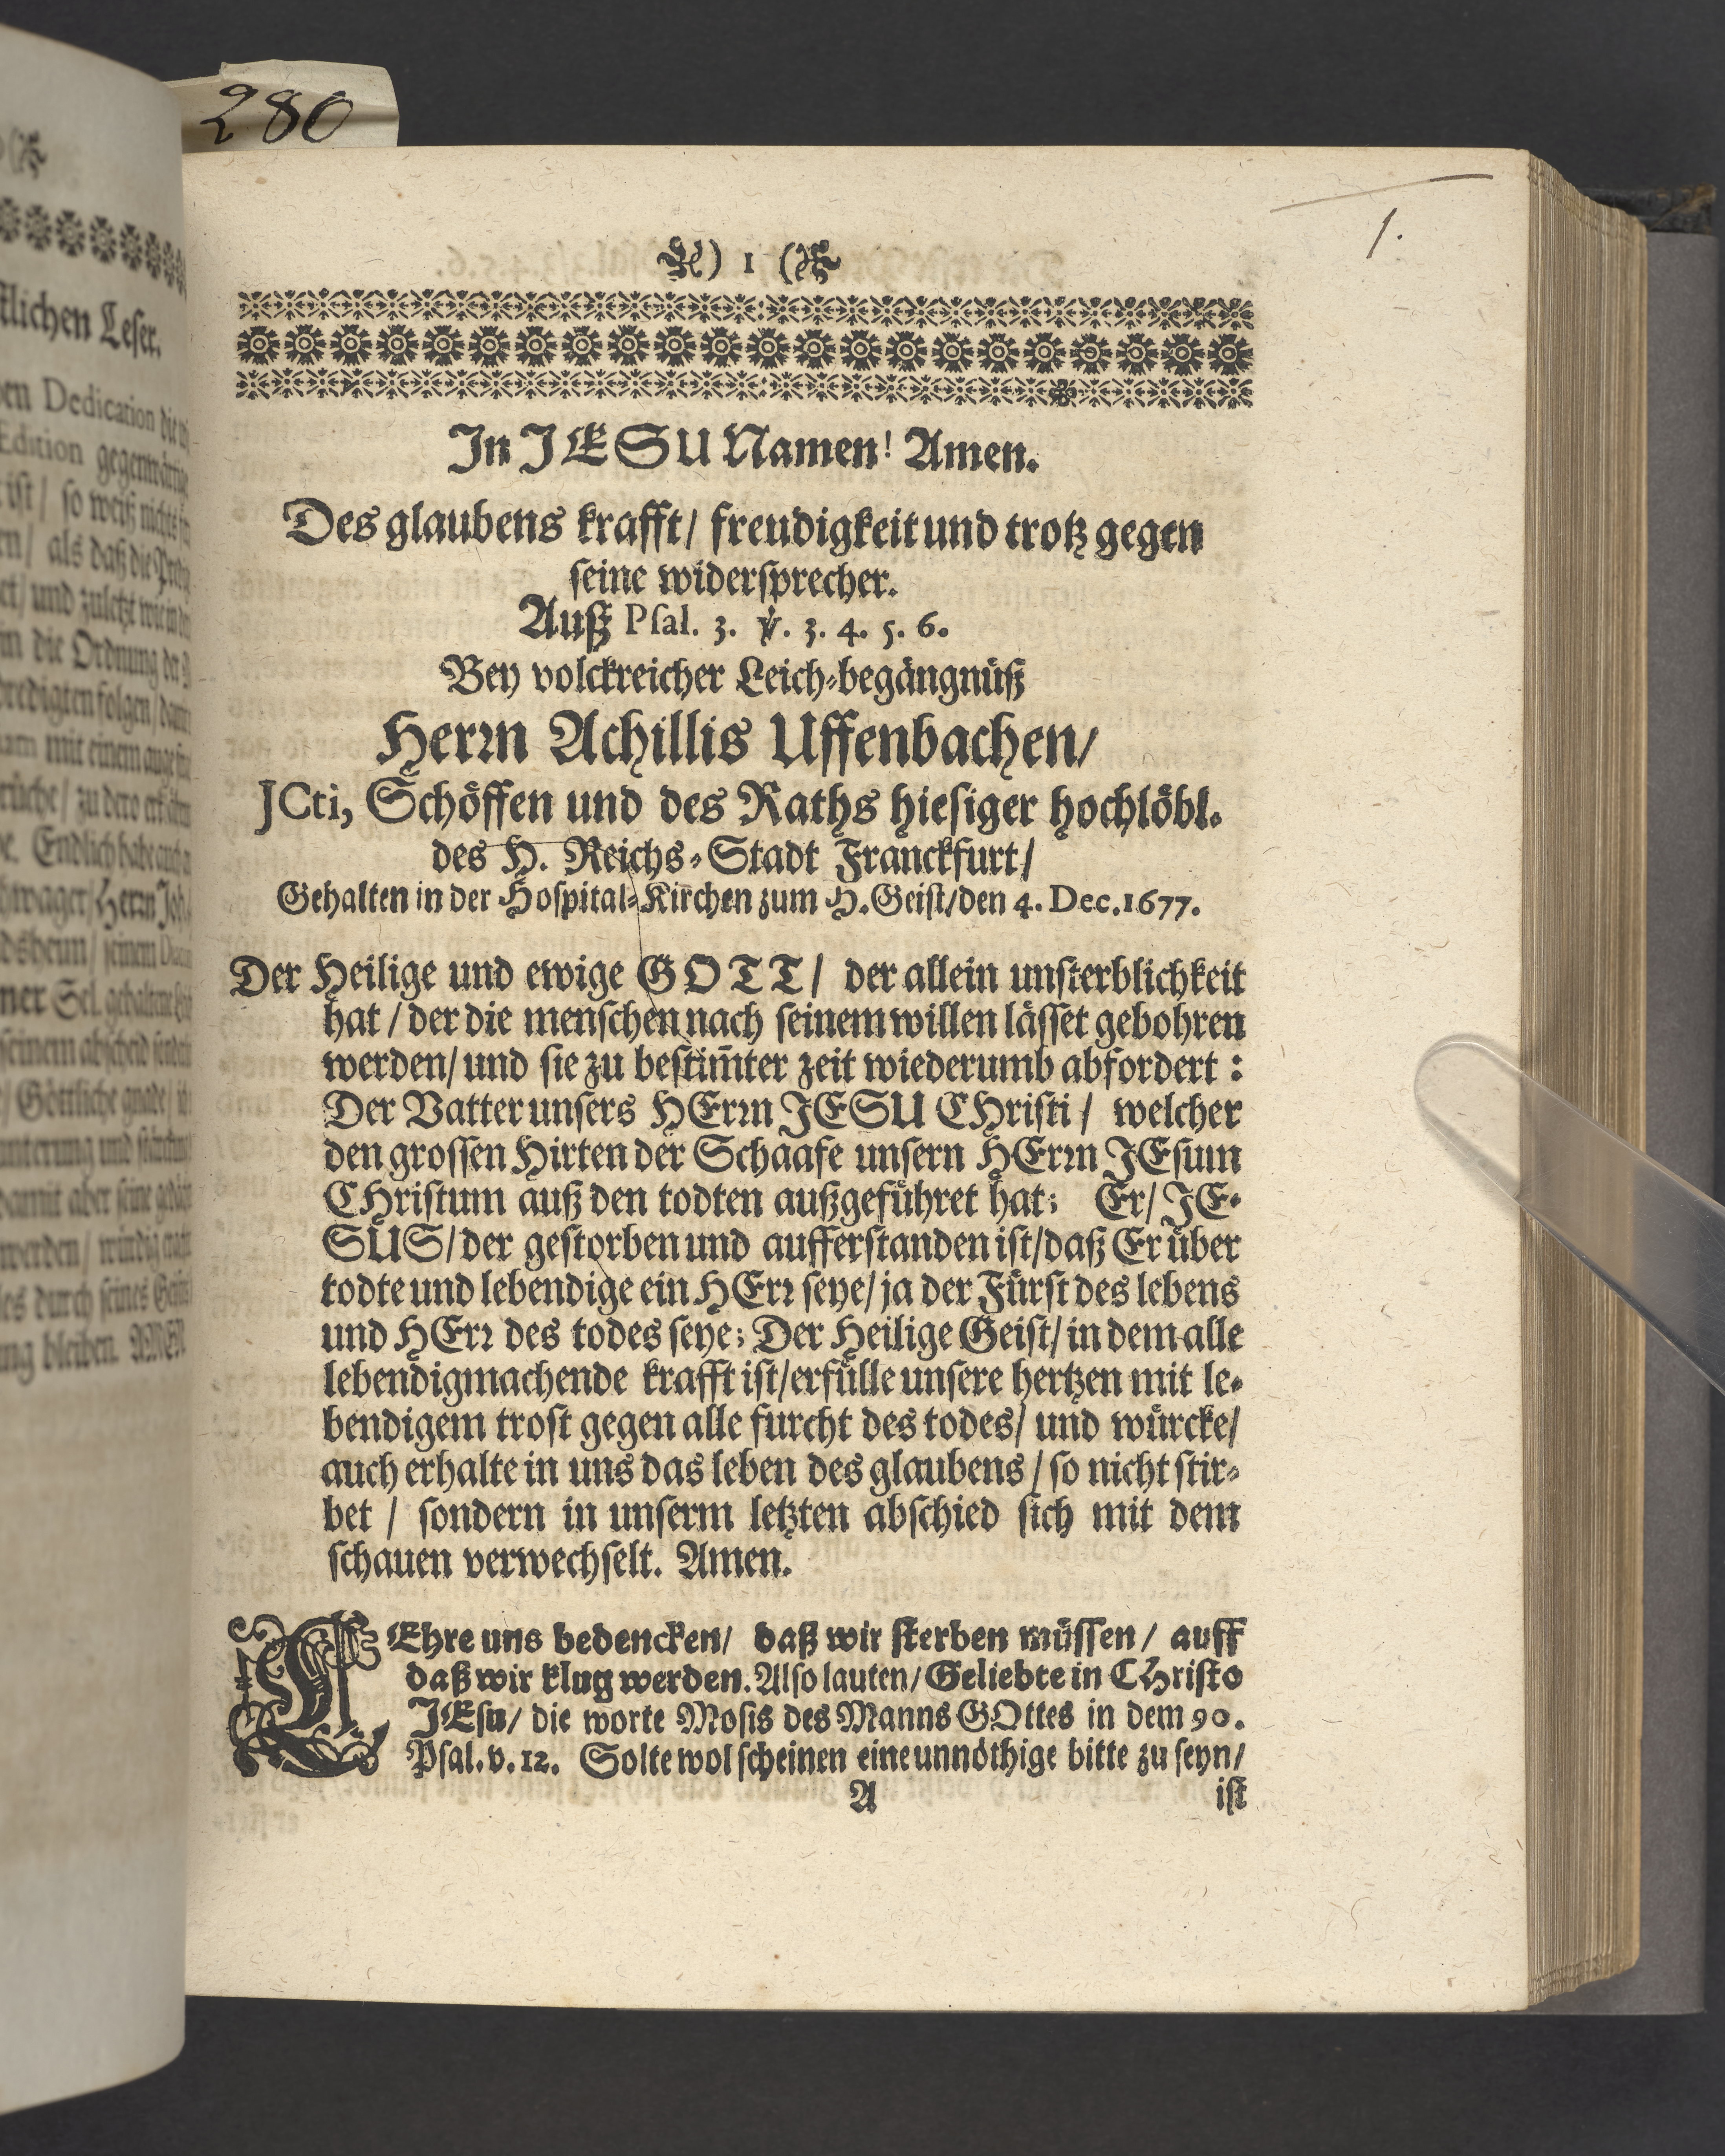 280
1.
) 1 (
In JESU Namen! Amen.
Des glaubens krafft/ freudigkeit und trotz gegen
seine widersprecher.
Auß Psal. 3. ℣. 3. 4. 5. 6.
Bey volckreicher Leich-begängnüß
Herrn Achillis Uffenbachen/
JCti, Schöffen und des Raths hiesiger hochlöbl.
des H. Reichs-Stadt Franckfurt/
Gehalten in der Hospital-Kirchen zum H. Geist/den 4. Dec. 1677.
Der Heilige und ewige GOTT/ der allein unsterblichkeit
hat / der die menschen nach seinem willen lässet gebohren
werden/ und sie zu bestim̄ter zeit wiederumb abfordert:
Der Vatter unsers HErrn JESU CHristi / welcher
den grossen Hirten der Schaafe unsern HErrn JEsum
CHristum auß den todten außgeführet hat; Er/ JE-
SUS/ der gestorben und aufferstanden ist/daß Er über
todte und lebendige ein HErr seye/ ja der Fürst des lebens
und HErr des todes seye; Der Heilige Geist/ in dem alle
lebendigmachende krafft ist/erfülle unsere hertzen mit le-
bendigem trost gegen alle furcht des todes/ und würcke/
auch erhalte in uns das leben des glaubens / so nicht stir-
bet / sondern in unserm letzten abschied sich mit dem
schauen verwechselt. Amen.
LEhre uns bedencken/ daß wir sterben müssen/ auff
daß wir klug werden. Also lauten/ Geliebte in CHristo
JEsu/ die worte Mosis des Manns GOttes in dem 90.
Psal. v. 12. Solte wol scheinen eine unnöthige bitte zu seyn/
A ist
tlichen Leser.
Dedication
Edition
ist/ so weiß nichts
als daß die
und zuletzt
in die Ordnung der
predigten folgen/
mit einem
Endlich habe auch
Herrn Joh.
seinem
Sel.
seinem abschied
Göttliche gnade/
damit aber seine
werden/ würdig
durch seines
bleiben. AMEN